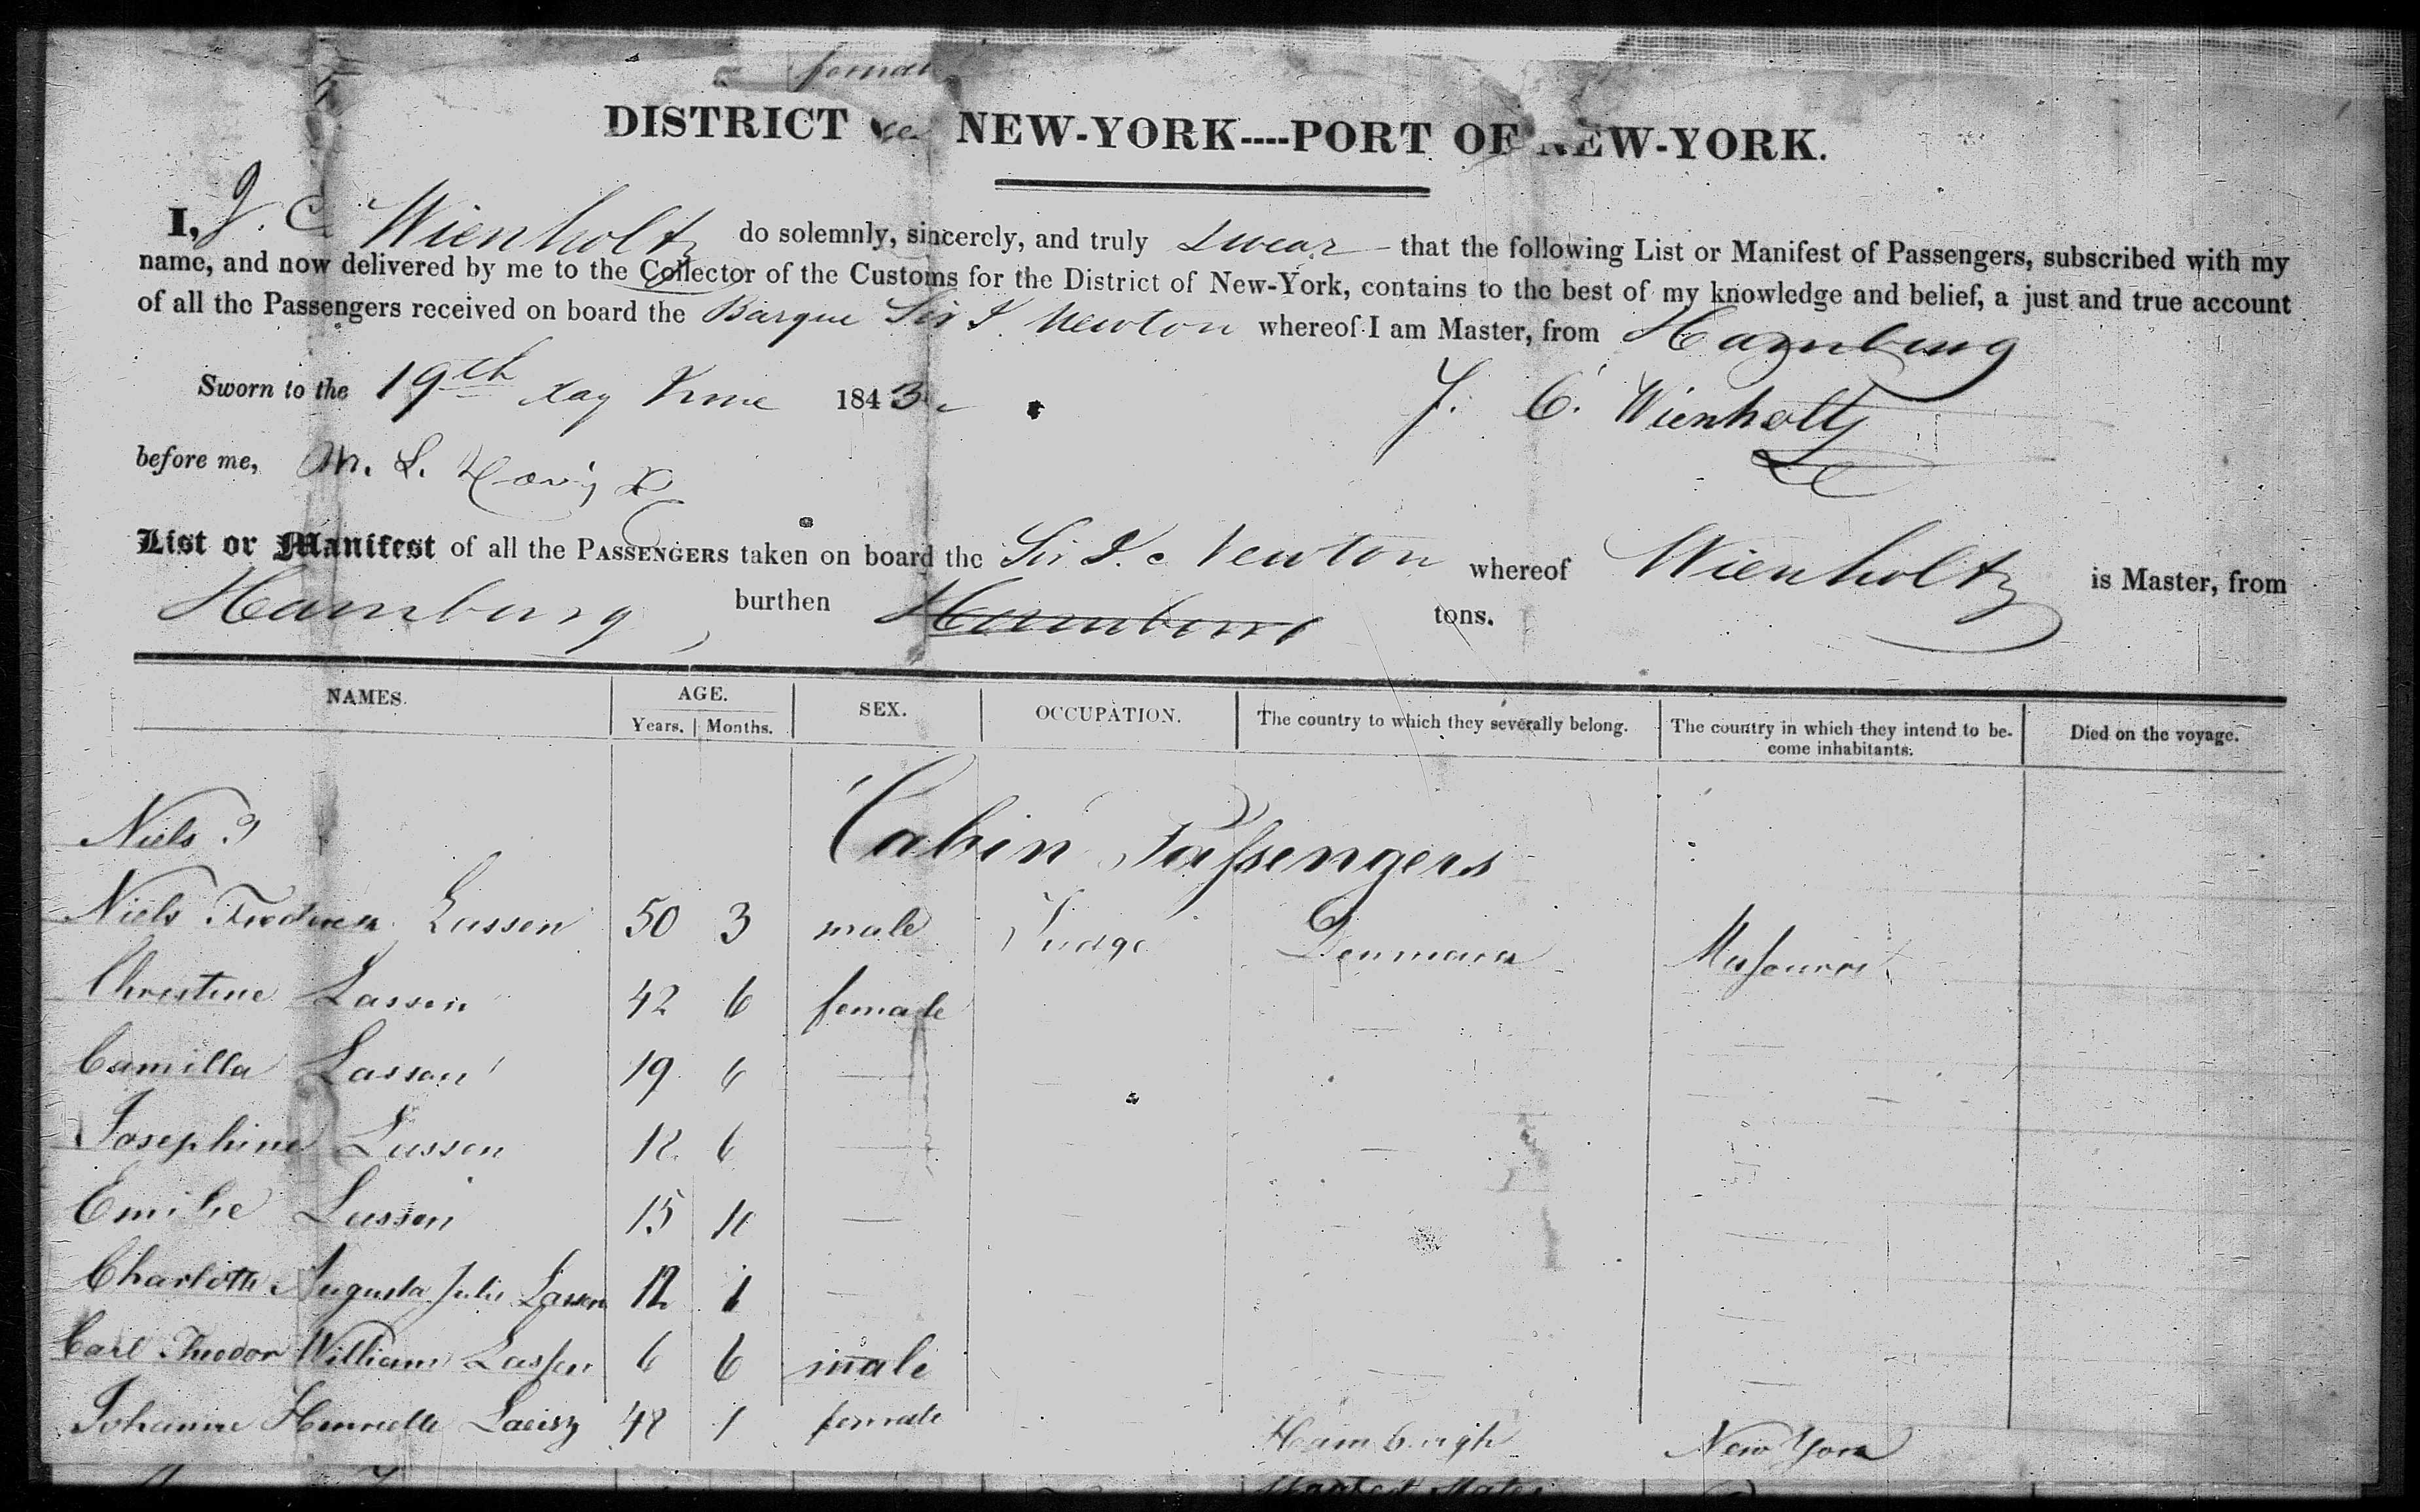 femal
DISTRICT NEW-YORK----PORT OF NEW-YORK.
I, J. C. Wienholtz do solemnly, sincerely, and truly swear that the following List or Manifest of Passengers, subscribed with my
name, and now delivered by me to the Collector of the Customs for the District of New-York, contains to the best of my knowledge and belief, a just and true account
of all the Passengers received on board the Barque Sir I. Newton whereof I am Master, from Hamburg
Sworn to the 19th day June 1843
J. C. Wienholtz
before me, M. L.
List or Manifest of all the PASSENGERS taken on board the Sir I. Newton whereof Wienholtz is Master, from
Hamburg, burthen Hamburg tons.
NAMES. AGE. SEX. OCCUPATION. The country to which they severally belong. The country in which they intend to be- Died on the voyage.
Years. Months. come inhabitants.
Cabin Passengers
Niels
Niels Lassen 50 3 male Judge Denmark Missouri
Christine Lassen 42 6 female
Camilla Lassen 19 6
Josephine Lassen 18 6
Emilie Lassen 15 11
Charlotte Augusta Julie Lassen 12 1
Carl Theodor William Lassen 6 6 male
Johanne Henriette 48 1 female Hamburgh New York
United States